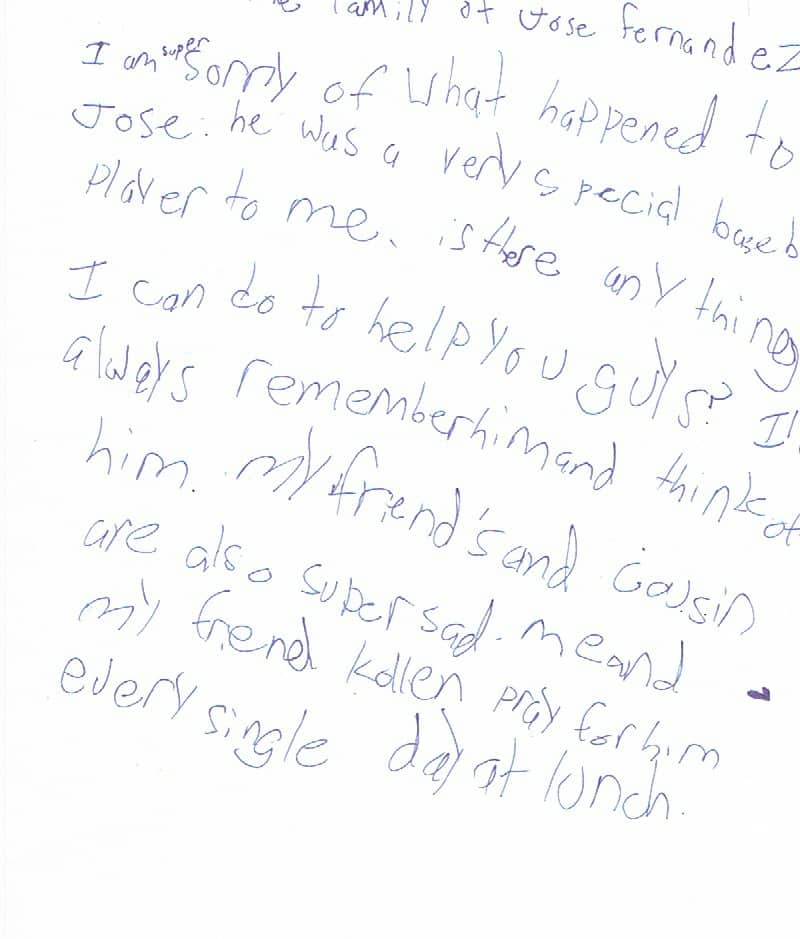 family of Jose Fernandez
I am super sorry of what happened to
Jose. he was a very special baseb
Player to me. is there any thing
I can do to help you guys? I'
always remember him and think of
him. my friend's and cousin
are also super sad. me and
my friend kollen pray for him
every single day at lunch.